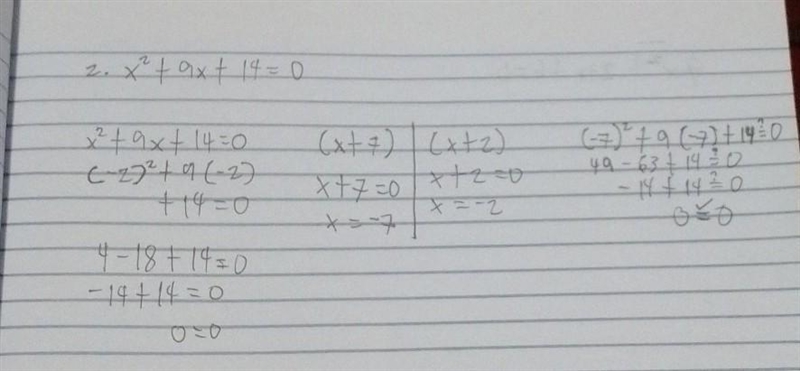 2. x² + 9x + 14 = 0
x² + 9x + 14 = 0
(-2)² + 9 (-2)
+ 14 = 0
4 - 18 + 14 = 0
-14 + 14 = 0
0 = 0
(x + 7)
x + 7 = 0
x = -7
(x + 2)
x + 2 = 0
x = -2
(-7)² + 9 (-7) + 14 ≟ 0
49 - 63 + 14 ≟ 0
-14 + 14 ≟ 0
0 =✓ 0